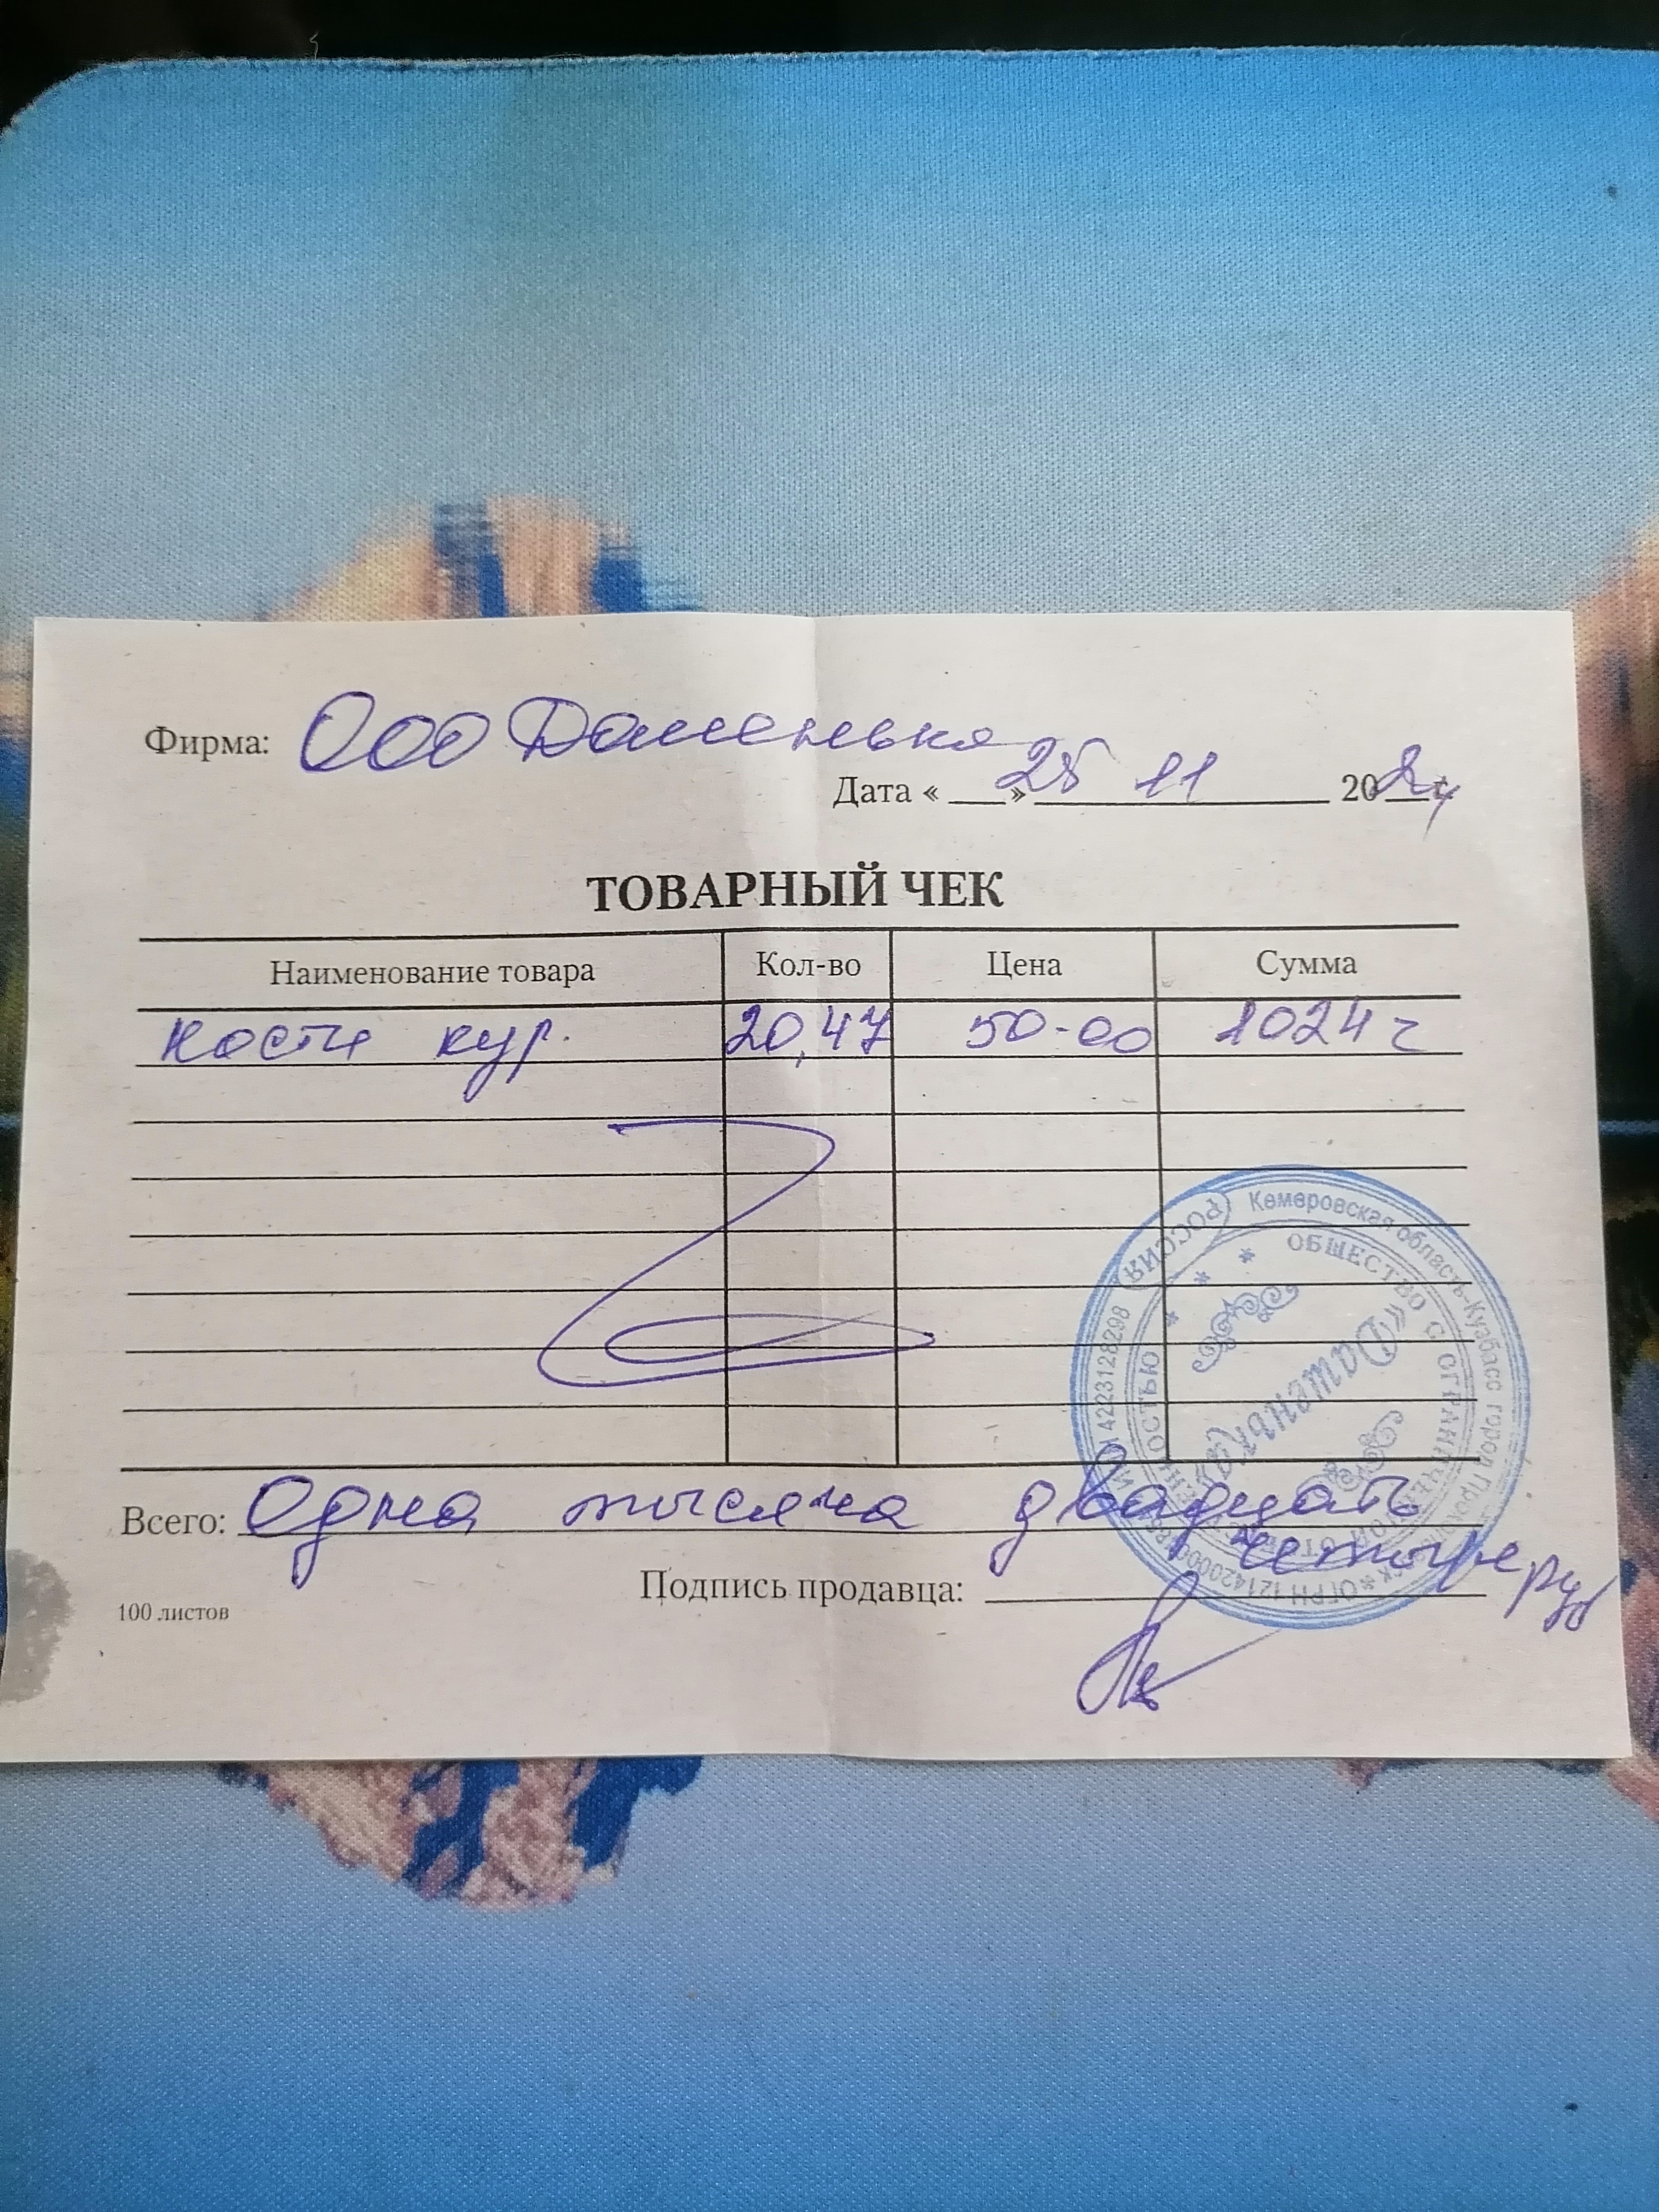 Фирма: ООО Доменька
Дата « » 25 11 2024
ТОВАРНЫЙ ЧЕК
Наименование товара Кол-во Цена Сумма
кости кур. 20,47 50-00 1024
Всего: Одна тысяча двадцать
четыре руб
Подпись продавца:
100 листов
РОССИЯ Кемеровская область-Кузбасс город
ИНН 4223128298
ОБЩЕСТВО С ОГРАНИЧЕННОЙ ОТВЕТСТВЕННОСТЬЮ